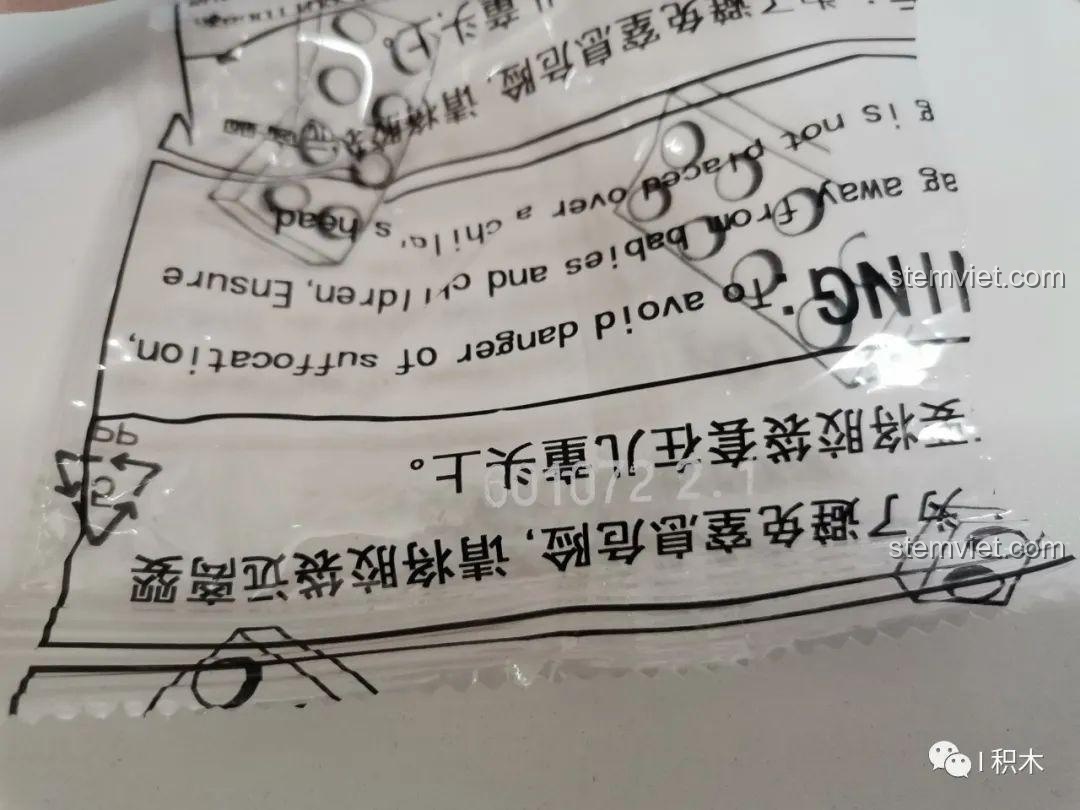 为了避免窒息危险，请将胶袋远离婴
要将胶袋套在儿童头上。
5
PP
601072 2.1
NG: To avoid danger of suffocation,
ag away from babies and children, Ensure
g is not placed over a child's head
为了避免窒息危险，请将胶袋
儿童头上。
stemviet.com
stemviet.com
I 积木